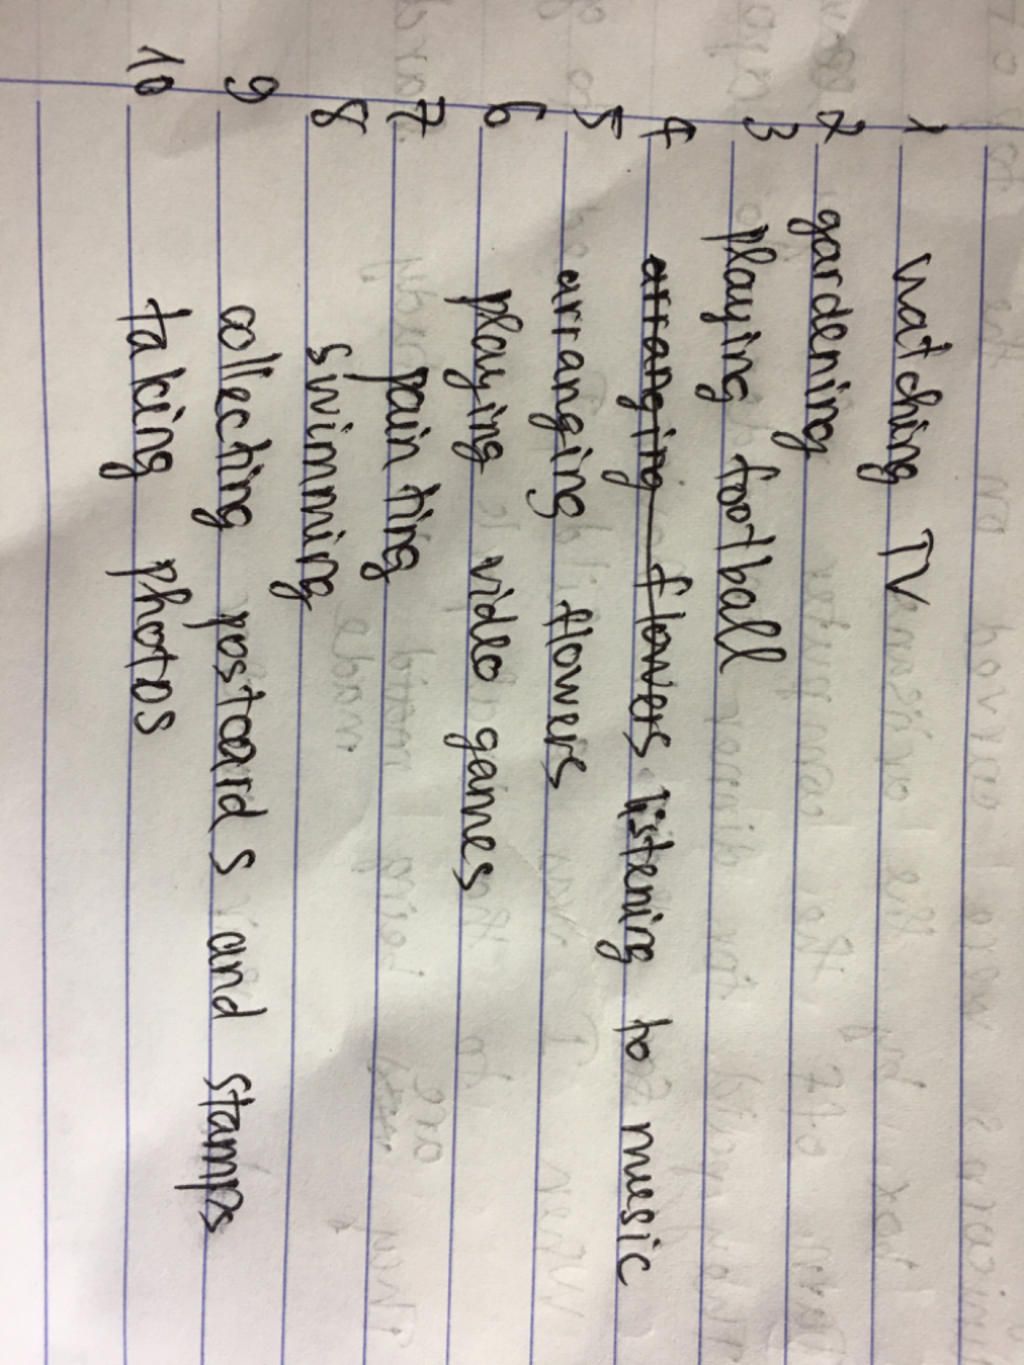 1 watching TV
2 gardening
3 playing football
4 arranging flowers listening to music
5 arranging flowers
6 playing video games
7 painting
8 swimming
9 collecting postcards and stamps
10 taking photos